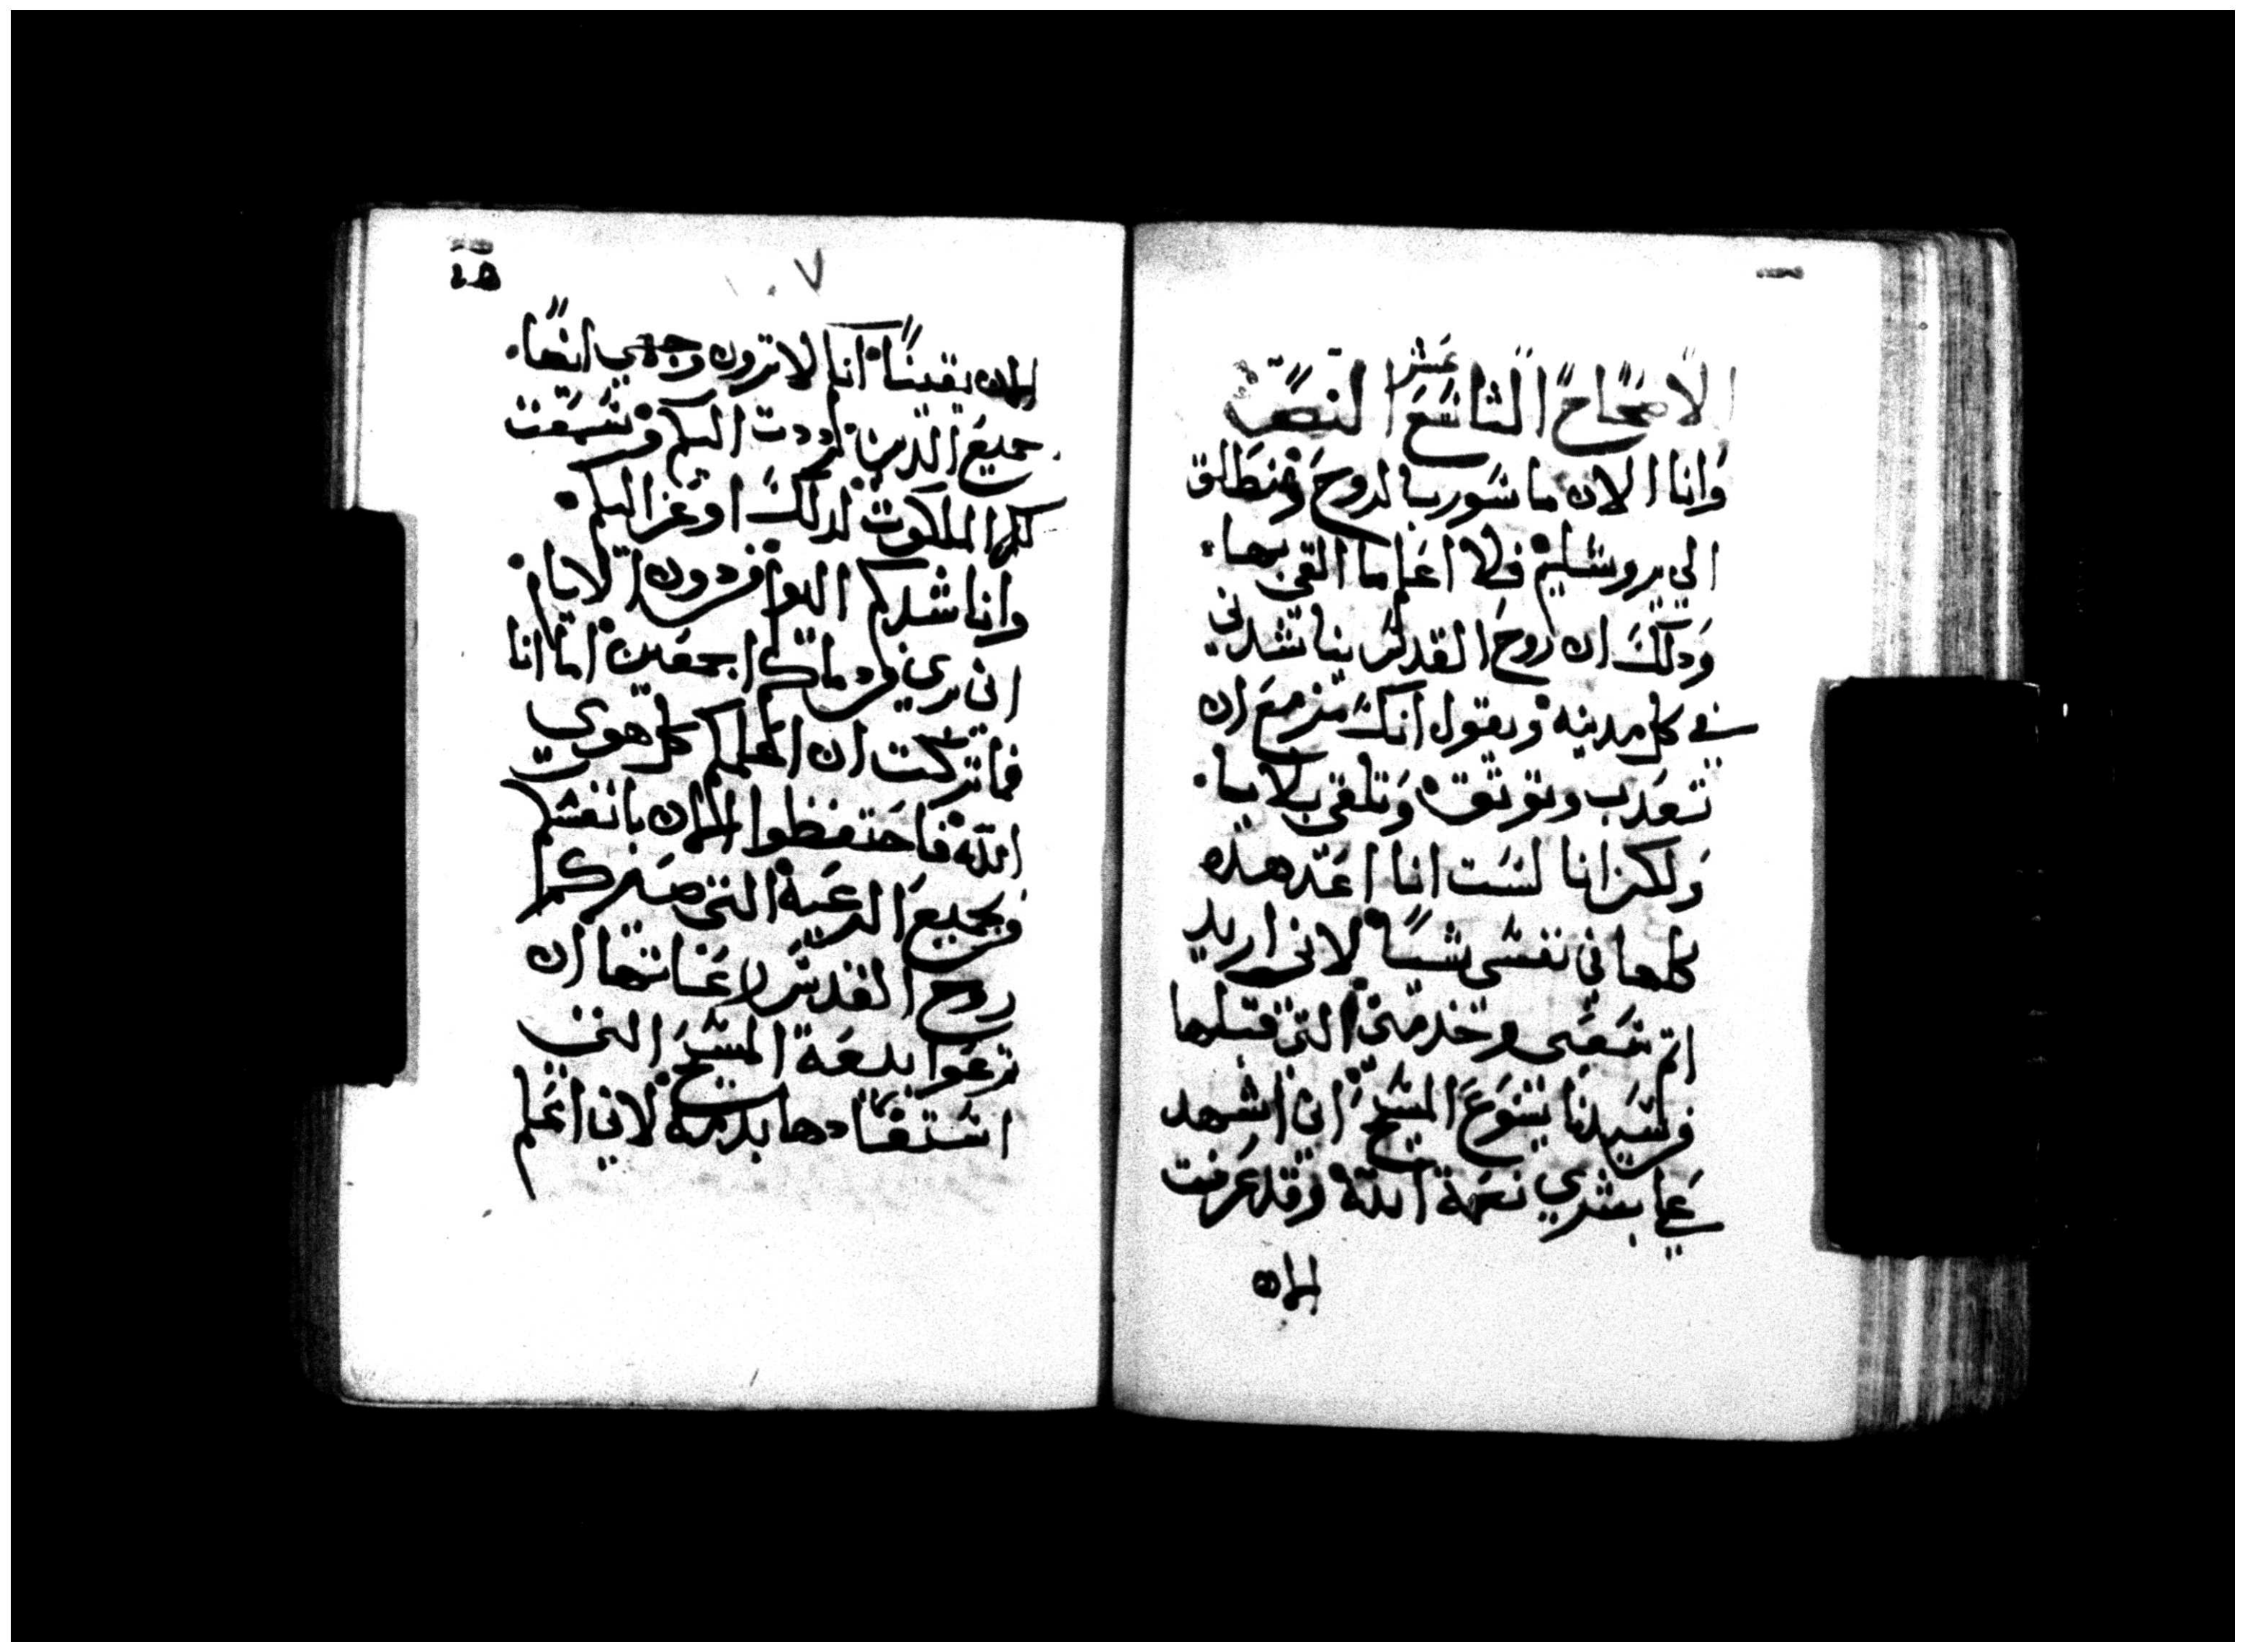 الاصحاح التاسع عشر النص
وانا الان ماسور بالروح ومنطلق
الي يروشليم فلا اعلم ما القي بها
ودلك ان روح القدس يناشدني
في كل مدينه ويقول انك مزمع ان
تعدب وتوثق وتلقي بلايا
ولكن انا لست انا اعد هده
كلها في نفسي شيا لاني اريد
اتم سعيي وخدمتي التي قبلها
من سيدنا يسوع المسيح اني اشهد
علي بشري نعمة الله وقد عرفت
الان
١٠٧
الان يقينا انكم لا ترون وجهي ايضا
جميع الدين ترددت اليكم وتسمعت
لكم الملكوت لدلك اوعز اليكم
واناشدكم اليوم
اني بري من دماكم اجمعين اما انا
فما تركت ان اعلمكم كل هوي
الله فاحتفظوا الان بانفسكم
وبجميع الرعية التي صيركم
روح القدس رعاتها ان
ترعوا بيعة المسيح التي
استفادها بدمه لاني اعلم